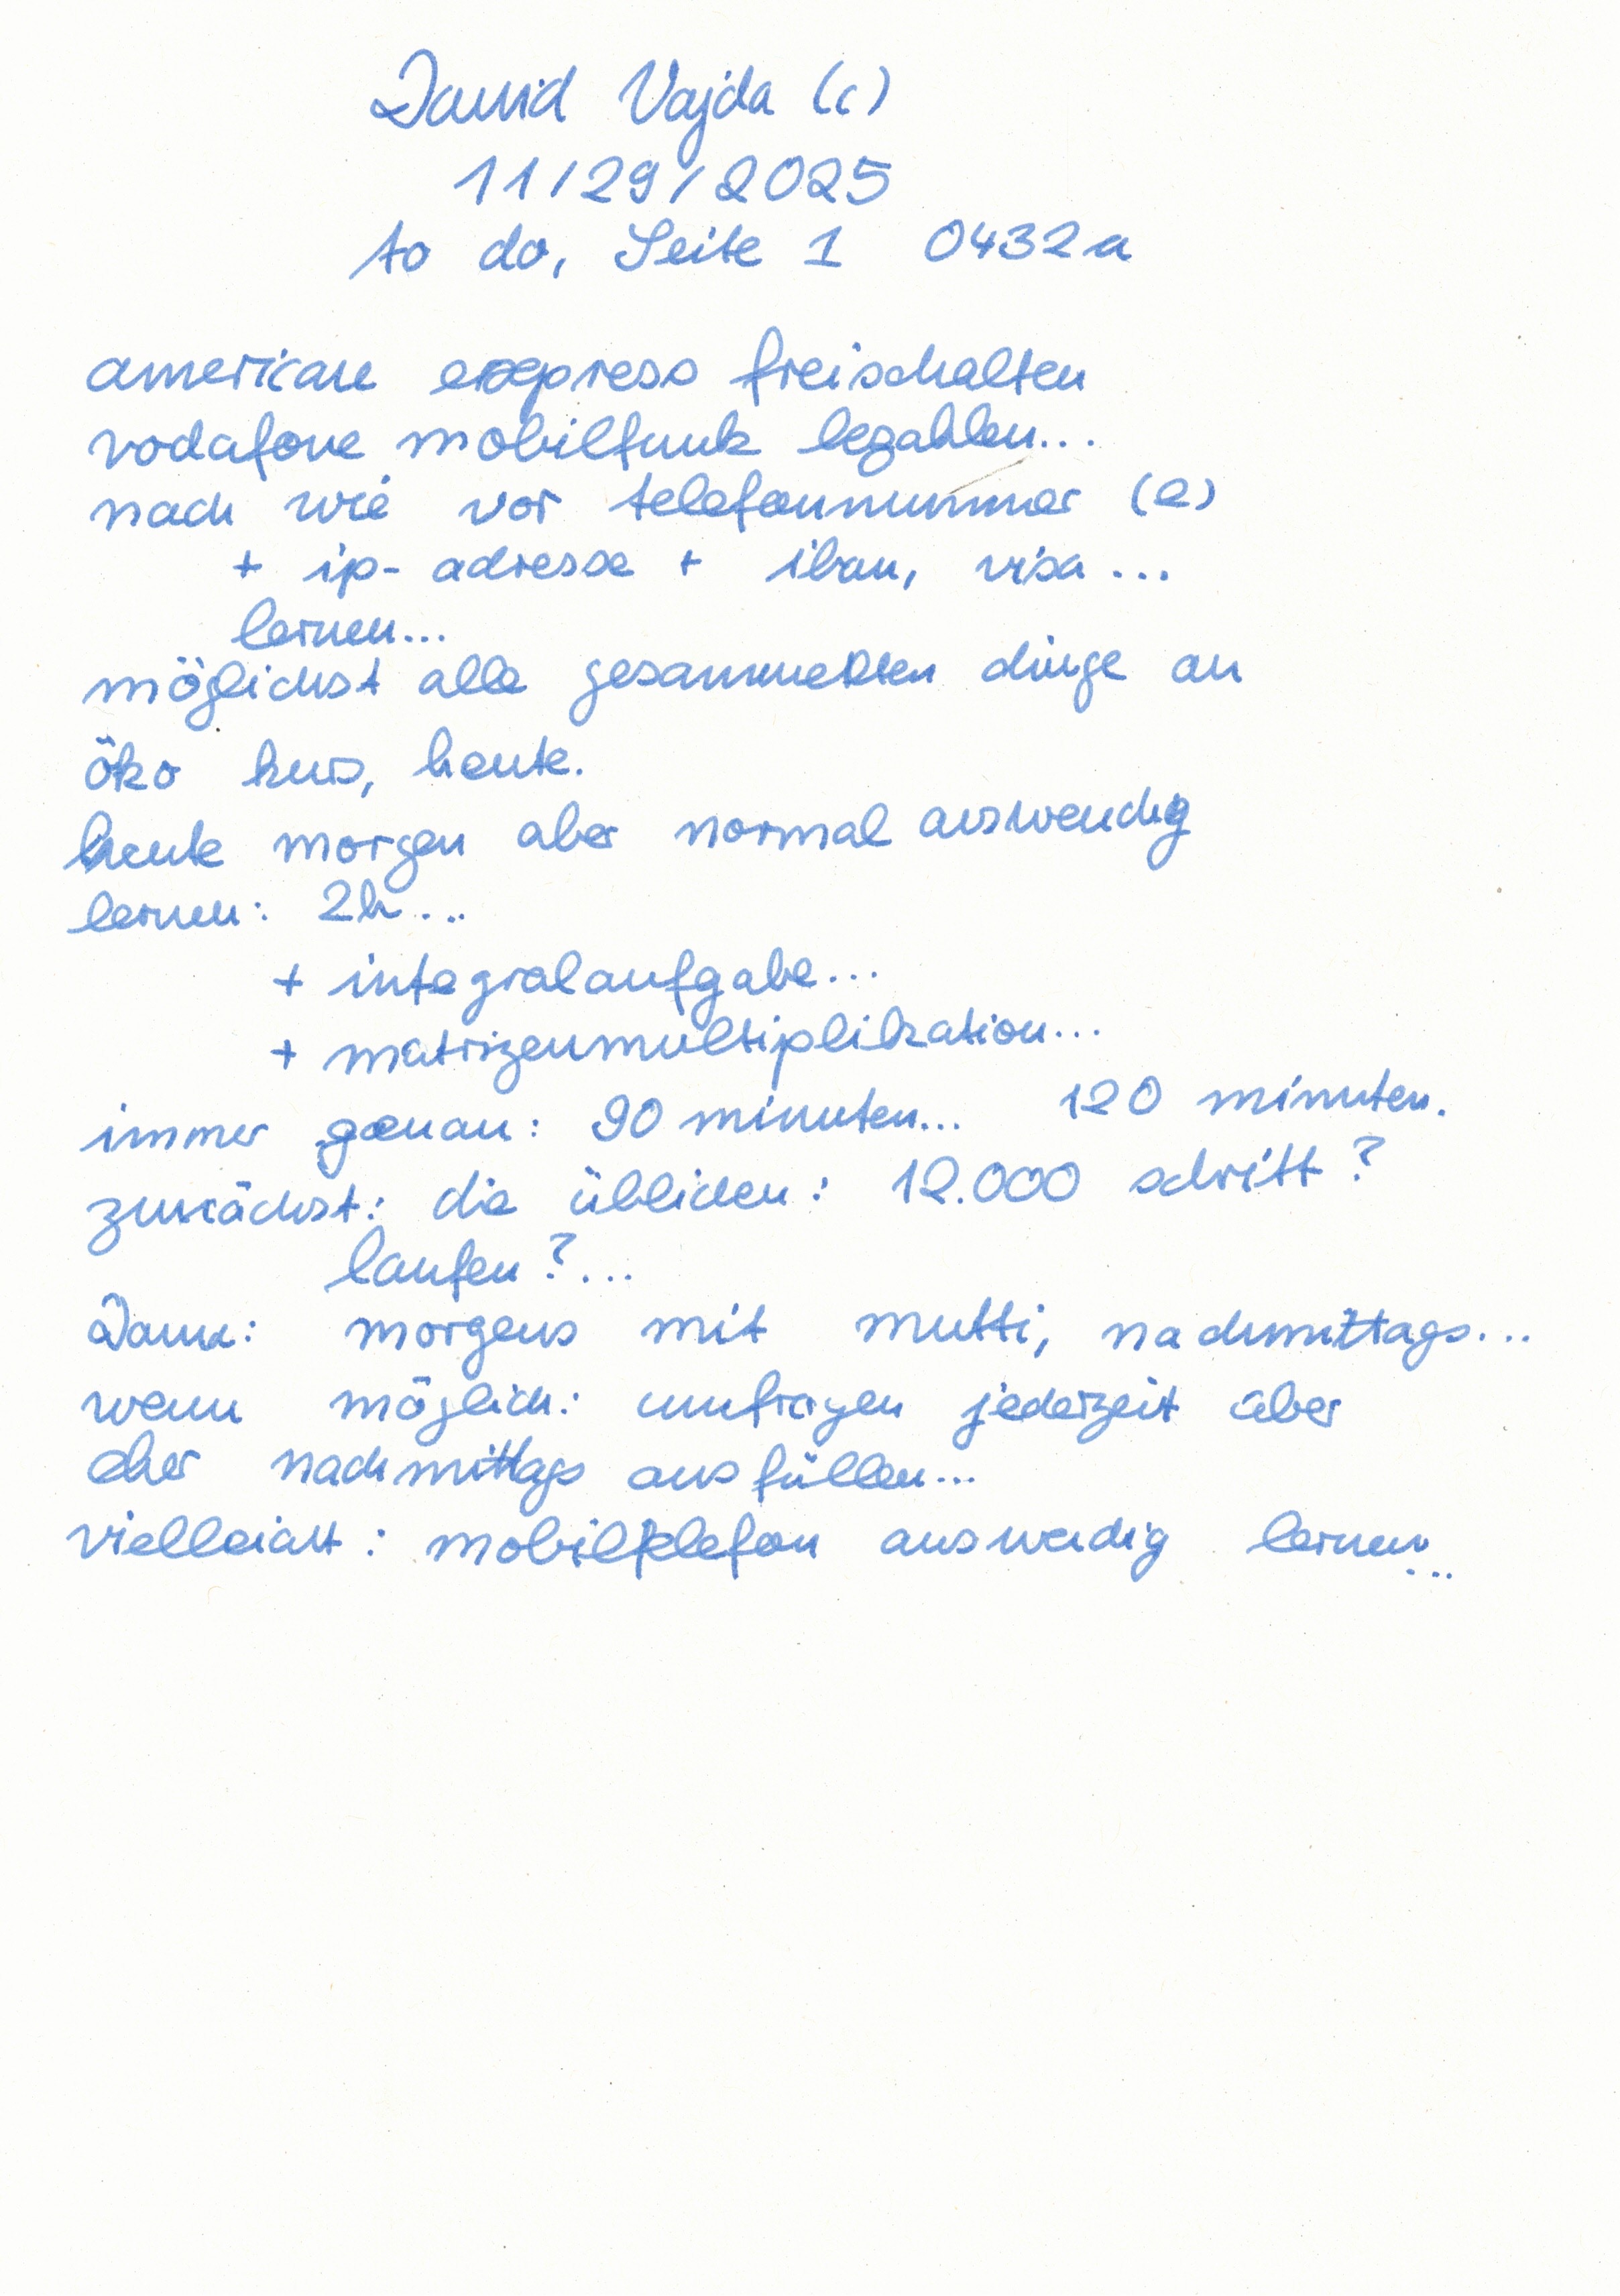 David Vajda (c)
11/29/2025
to do, Seite 1 0432a
american express freischalten
vodafone mobilfunk bezahlen...
nach wie vor telefonnummer (e)
+ ip-adresse + iban, visa...
lernen...
möglichst alle gesammelten dinge an
öko kurs, heute.
heute morgen aber normal auswendig
lernen: 2h...
+ integralaufgabe...
+ matrizenmultiplikation...
immer genau: 90 minuten... 120 minuten.
zunächst: die üblichen: 12.000 schritt?
laufen?...
Dann: morgens mit mutti, nachmittags...
wenn möglich: umfragen jederzeit aber
eher nachmittags ausfüllen...
vielleicht: mobiltelefon auswendig lernen...